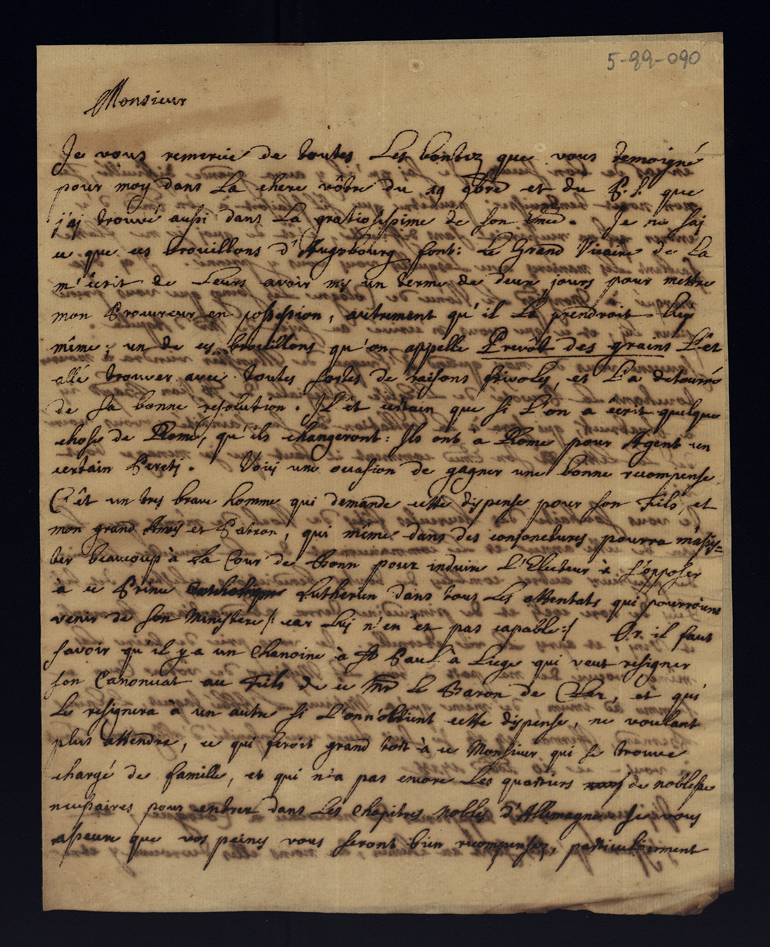 5-99-090
Monsieur
Je vous remercie de toutes Les bontez que vous temoigné
pour moy dans La chere vôtre du 19 9bre et du P.S. que
j'aj trouvé aussi dans La gratiosissime de Son Emce. Je ne saj
ce que ces brouillons d'Augsbourg font: Le Grand Vicaire de La
m'écrit de Leurs avoir mis un terme de deux jours pour mettre
mon Procureur en possession, autrement qu'il La prendroit Luy
même; un de ces brouillons qu'on appelle Prevôt des grains L'êt
allé trouver avec toutes sortes de raisons frivoles, et L'a detourné
de sa bonne resolution. Il êt certain que si L'on a écrit quelque
chose de Rome, qu'ils changeront: Ils ont à Rome pour Agent un
certain Perets. Voicj une occasion de gagner une bonne recompense
C'êt un tres brave homme qui demande cette dispense pour son Fils, et
mon grand Amis et Patron, qui même dans des conjonctures pourra m'assis=
ter beaucoup à La Cour de Bonn pour induire L'Electeur à s'opposer
à ce Prince Lutherien dans tous Les attentats qui pourront
venir de son Ministere /: car Luj n'en êt pas capable:/ Or il faut
savoir qu'il y a un Chanoine à St Paul à Liege qui veut resigner
son Canonicat au Fils de ce Mr Le Baron de et qui
Le resignera à un autre si L'on n'obtient cette dispense, ne voulant
plus attendre, ce qui feroit grand tort à ce Monsieur qui se trouve
chargé de famille, et qui n'a pas encore Les quartiers de noblesse
necessaires pour entrer dans Les Chapitres nobles d'Allemagne. Je vous
asseure que vos peines vous seront bien recompensez, particulierement